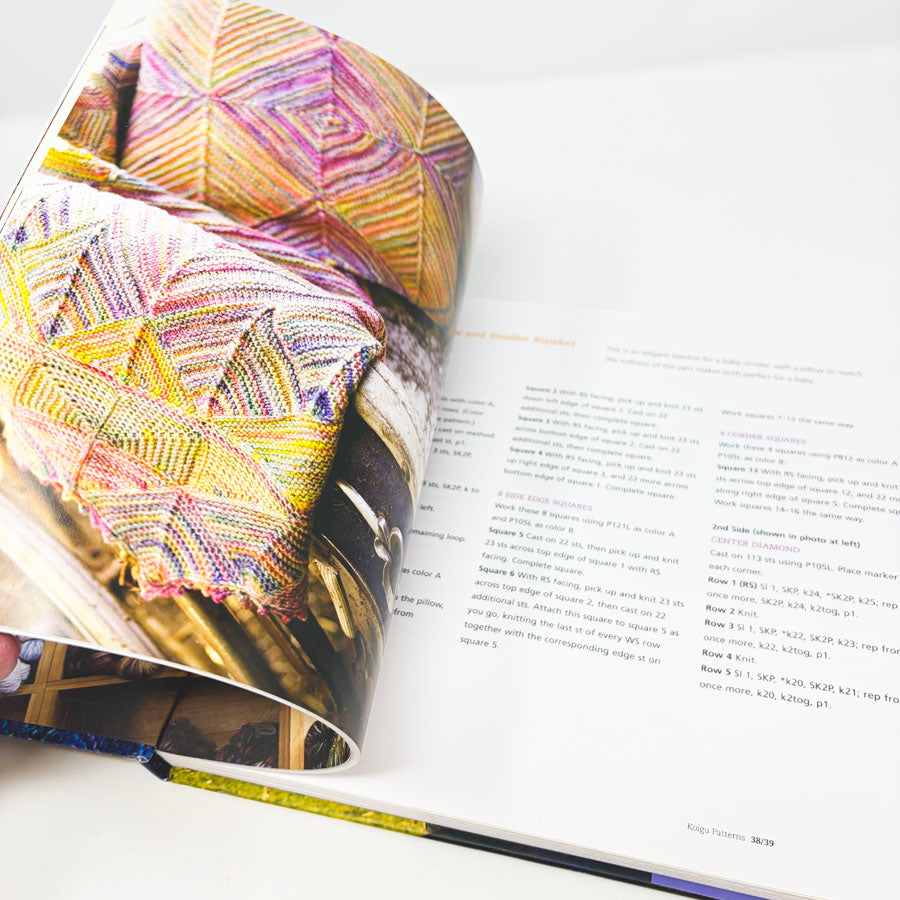 and Stroller Blanket
This is an elegant blanket for a baby stroller, with a pillow to match.
The softness of the yarn makes both perfect for a baby.
with color A,
rows. (Color
pattern.)
Cast on method.
st, p1.
sts, SK2P,
SK2P, k to
left.
remaining loop.
as color A
the pillow,
from
Square 2 With RS facing, pick up and knit 23 sts
down left edge of square 1. Cast on 22
additional sts, then complete square.
Square 3 With RS facing, pick up and knit 23 sts
across bottom edge of square 2. Cast on 22
additional sts, then complete square.
Square 4 With RS facing, pick up and knit 23 sts
up right edge of square 3, and 22 more across
bottom edge of square 1. Complete square.
8 SIDE EDGE SQUARES
Work these 8 squares using P121L as color A
and P105L as color B.
Square 5 Cast on 22 sts, then pick up and knit
23 sts across top edge of square 1 with RS
facing. Complete square.
Square 6 With RS facing, pick up and knit 23 sts
across top edge of square 2, then cast on 22
additional sts. Attach this square to square 5 as
you go, knitting the last st of every WS row
together with the corresponding edge st on
square 5.
Work squares 7–12 the same way.
4 CORNER SQUARES
Work these 4 squares using P812 as color A
P105L as color B.
Square 13 With RS facing, pick up and knit
sts across top edge of square 12, and 22 
along right edge of square 5. Complete
Work squares 14–16 the same way.
2nd Side (shown in photo at left)
CENTER DIAMOND
Cast on 113 sts using P105L. Place marker
each corner.
Row 1 (RS) Sl 1, SKP, k24, *SK2P, k25; rep
once more, SK2P, k24, k2tog, p1.
Row 2 Knit.
Row 3 Sl 1, SKP, *k22, SK2P, k23; rep
once more, k22, k2tog, p1.
Row 4 Knit.
Row 5 Sl 1, SKP, *k20, SK2P, k21; rep
once more, k20, k2tog, p1.
Koigu Patterns 38/39